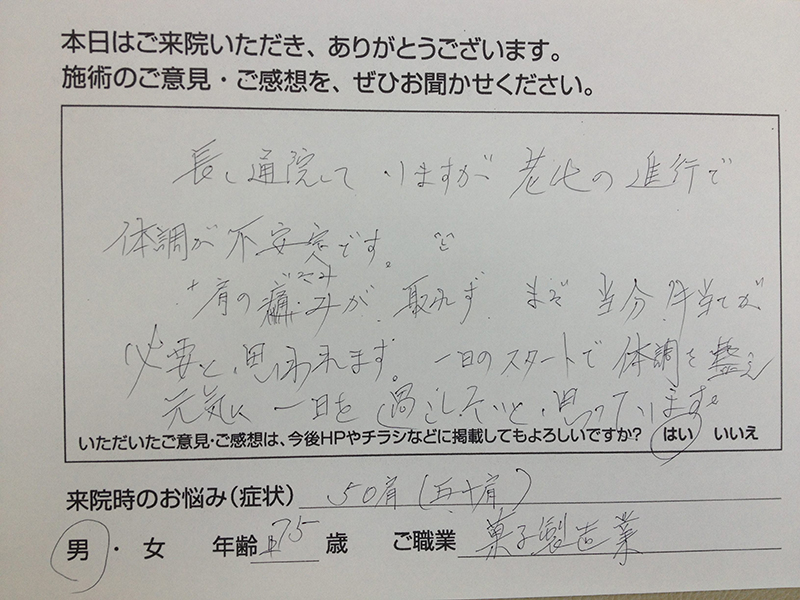 本日はご来院いただき、ありがとうございます。
施術のご意見・ご感想を、ぜひお聞かせください。
長く通院していますが 老化の進行で
体調が不安定です。
肩の痛みが 取れず まだ 当分 手当てが
必要と思われます。一日のスタートで体調を整え
元気に一日を過ごしたいと思っています。
いただいたご意見・ご感想は、今後HPやチラシなどに掲載してもよろしいですか? はい いいえ
来院時のお悩み(症状) 50肩(五十肩)
男・女 年齢 75 歳 ご職業 菓子製造業